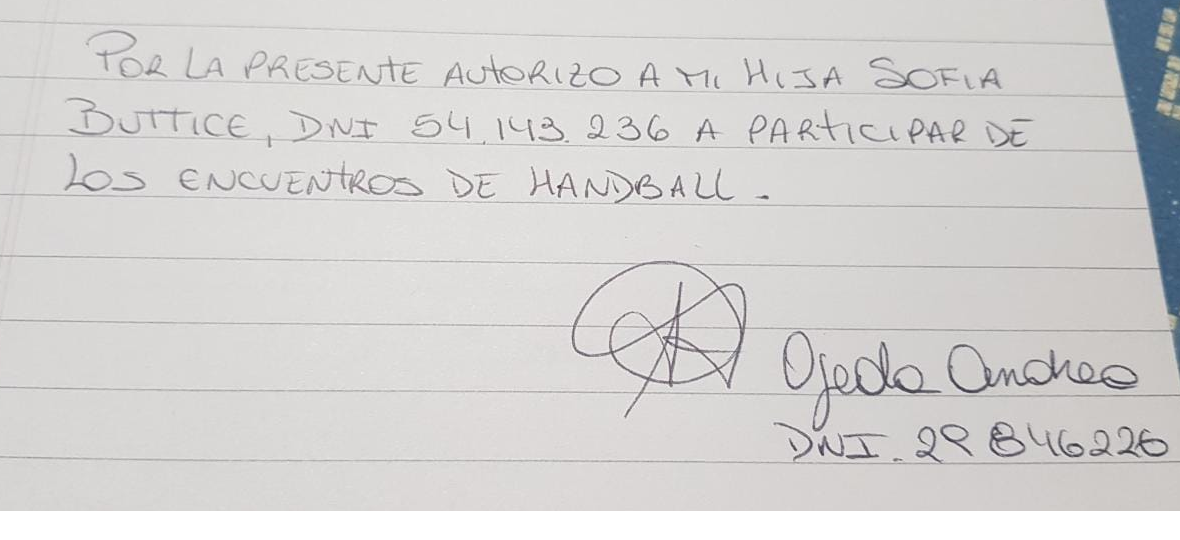 POR LA PRESENTE AUTORIZO A MI HIJA SOFIA
BUTTICE, DNI 54.143.236 A PARTICIPAR DE
LOS ENCUENTROS DE HANDBALL.
Ojeda Andrea
DNI. 29846226